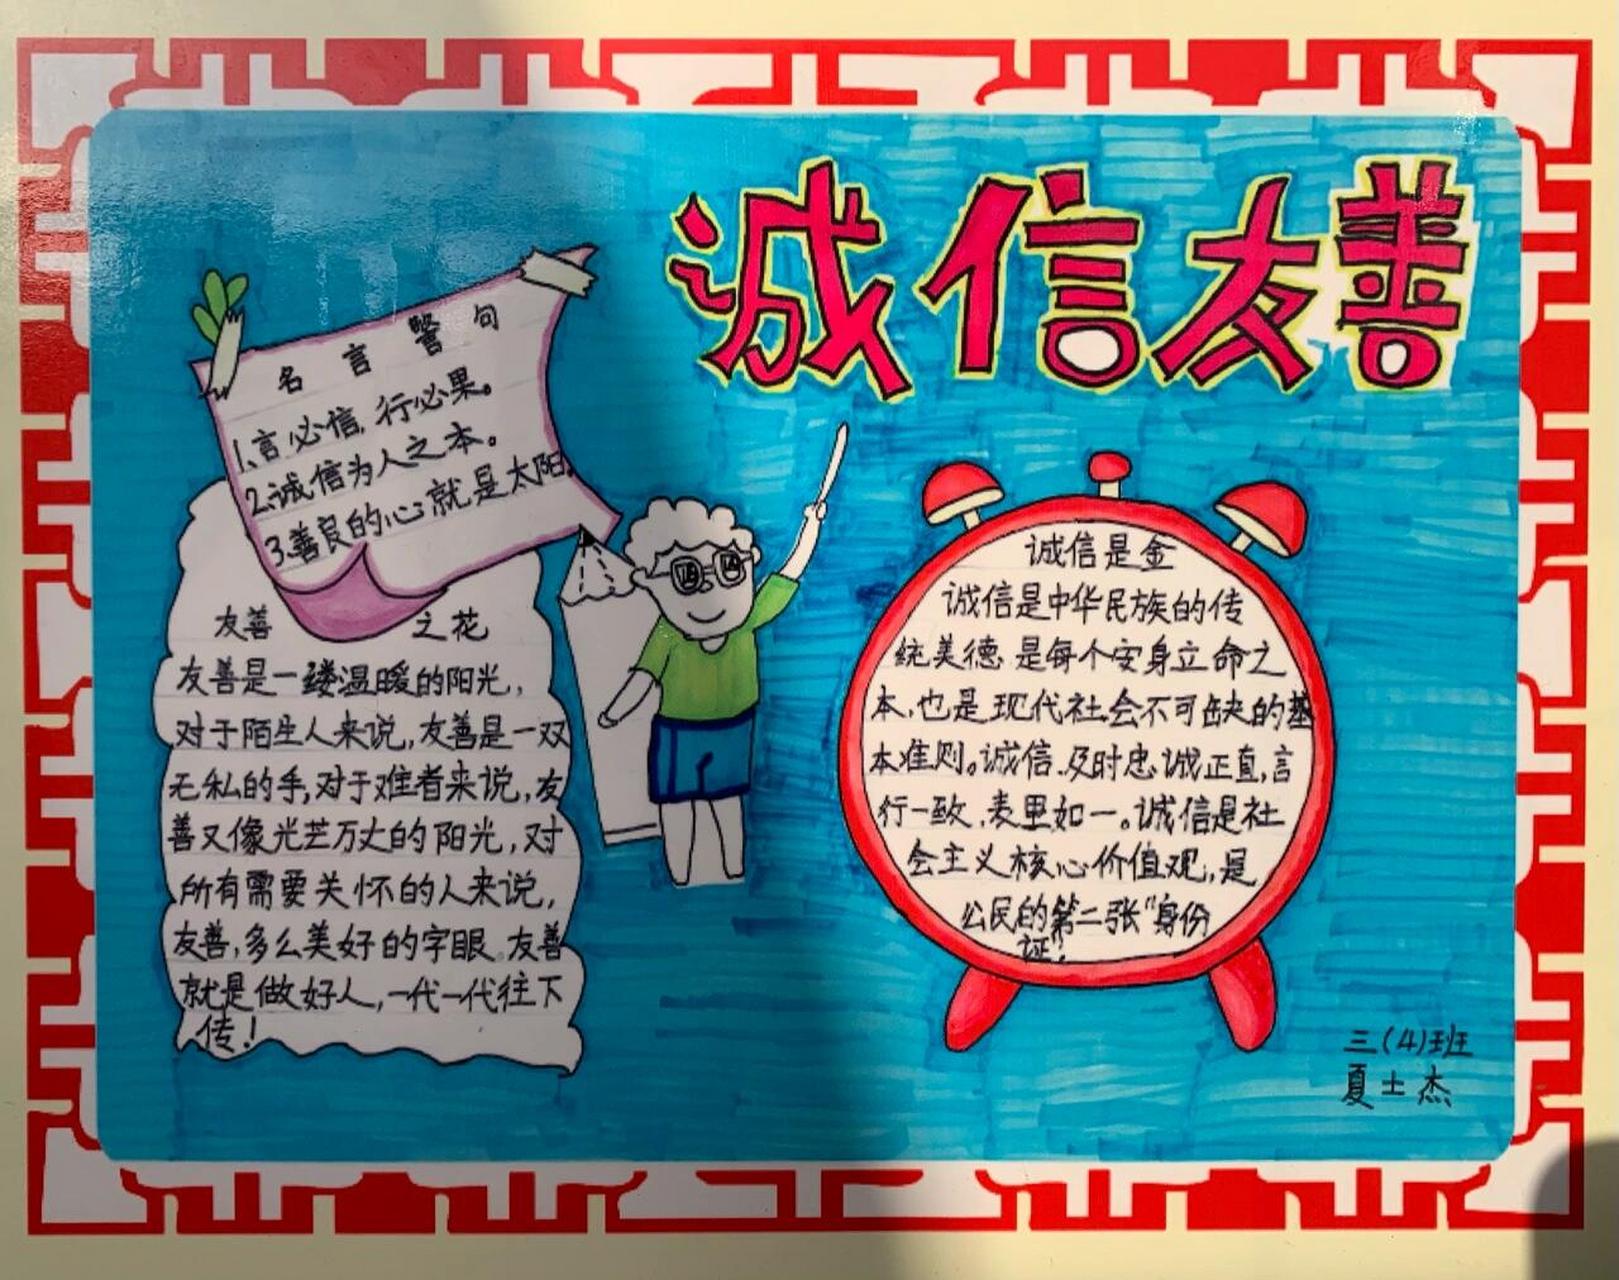 诚信友善
名言警句
1、言必信,行必果。
2、诚信为人之本。
3、善良的心就是太阳。
友善之花
友善是一缕温暖的阳光,
对于陌生人来说,友善是一双
无私的手,对于难者来说,友
善又像光芒万丈的阳光,对
所有需要关怀的人来说,
友善,多么美好的字眼。友善
就是做好人,一代一代往下
传!
诚信是金
诚信是中华民族的传
统美德,是每个安身立命之
本,也是现代社会不可缺的基
本准则。诚信,及时忠诚正直,言
行一致,表里如一。诚信是社
会主义核心价值观,是
公民的第二张"身份
证"。
三(4)班
夏士杰